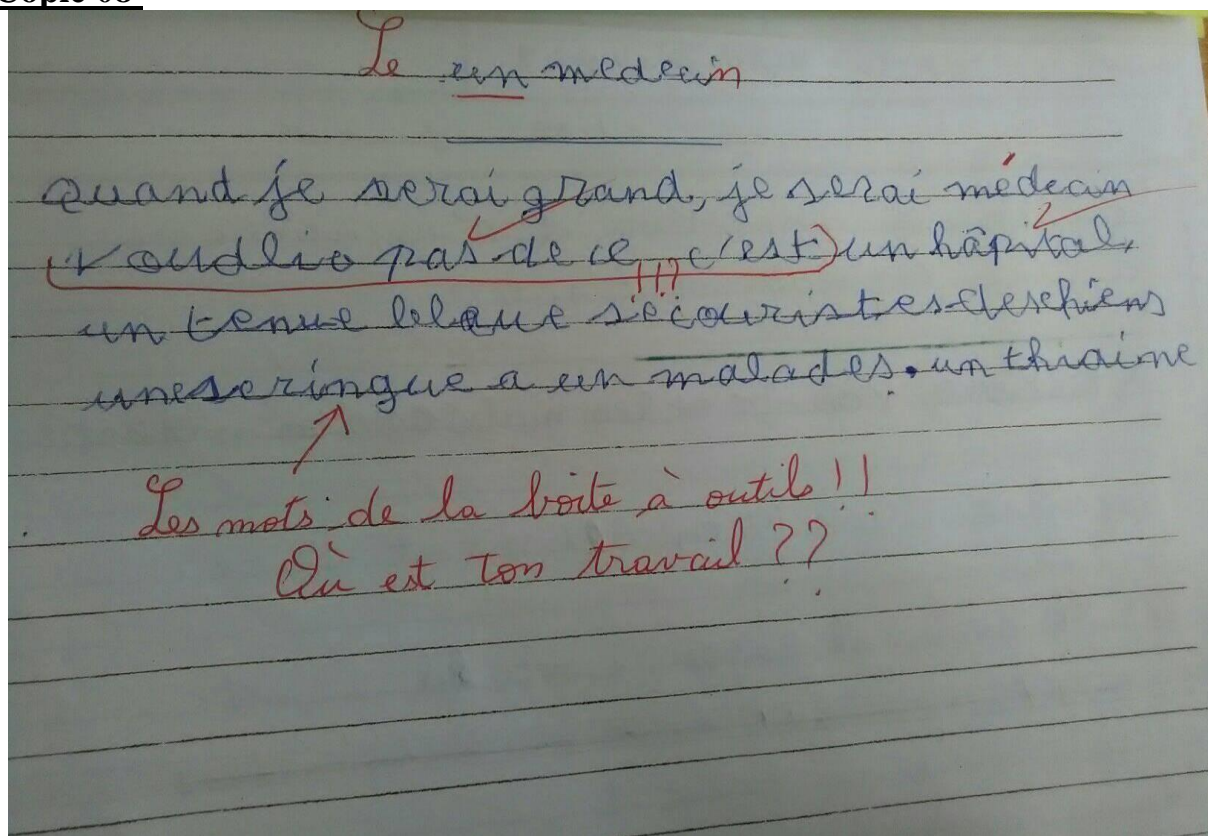 Le un medecin
Quand je serai grand, je serai médecin
voudlio pas de ce c'est) un hâpital,
!!?
un tenue bleaue sécouristes des chiens
une seringue a un malades. un thiaime
Les mots de la boîte à outils !!
Où est ton travail ??